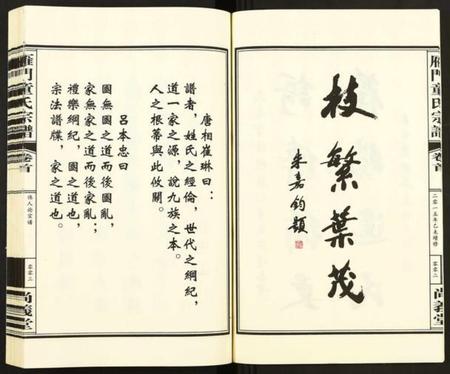 雁門童氏宗譜
卷首
二零一五年乙未續修
零零二
尚義堂
枝繁葉茂
朱嘉鈞題
唐相崔琳曰：
譜者，姓氏之經倫，世代之綱紀，
道一家之源，說九族之本。
人之根蒂與此攸關。
呂本忠曰
國無國之道而後國亂；
家無家之道而後家亂；
禮樂綱紀，國之道也，
宗法譜牒，家之道也。
雁門童氏宗譜
卷首
零零二
尚義堂